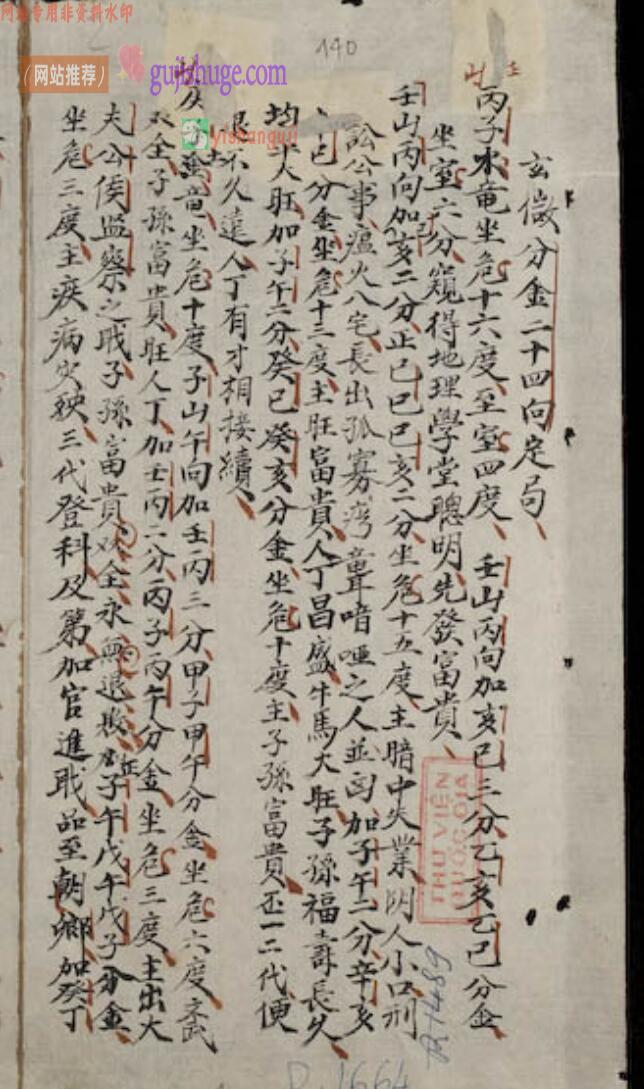 网站专用非资料水印
140
（网站推荐）
gujishuge.com
yishanguji
玄微分金二十四向定局
壬山
丙子水竜坐危十六度至室四度 壬山丙向加亥巳三分乙亥乙巳分金
坐室六分窺得地理學堂聰明先發富貴
壬山丙向加亥二分正己巳己亥二分坐危十五度主暗中失業陰人小口刑
訟公事瘟火八宅長出孤寡聾啞之人並凶加子午二分辛亥
巳分金坐危十三度主旺富貴人丁昌盛牛馬大旺子孫福壽長久
均平大旺加子午二分癸巳癸亥分金坐危十度主子孫富貴至一二代便
退不久遠人丁有才相接續
竜坐危十度子山午向加壬丙三分甲子甲午分金坐危六度主武
双全子孫富貴旺人丁加壬丙二分丙子丙午分金坐危三度主出大
夫公侯監察之职子孫富貴双全永無退敗正子午戊午戊子分金
坐危三度主疾病灾殃三代登科及第加官進职品至朝鄉加癸丁
THƯ VIỆN
QUỐC GIA
R.1489
R.1664